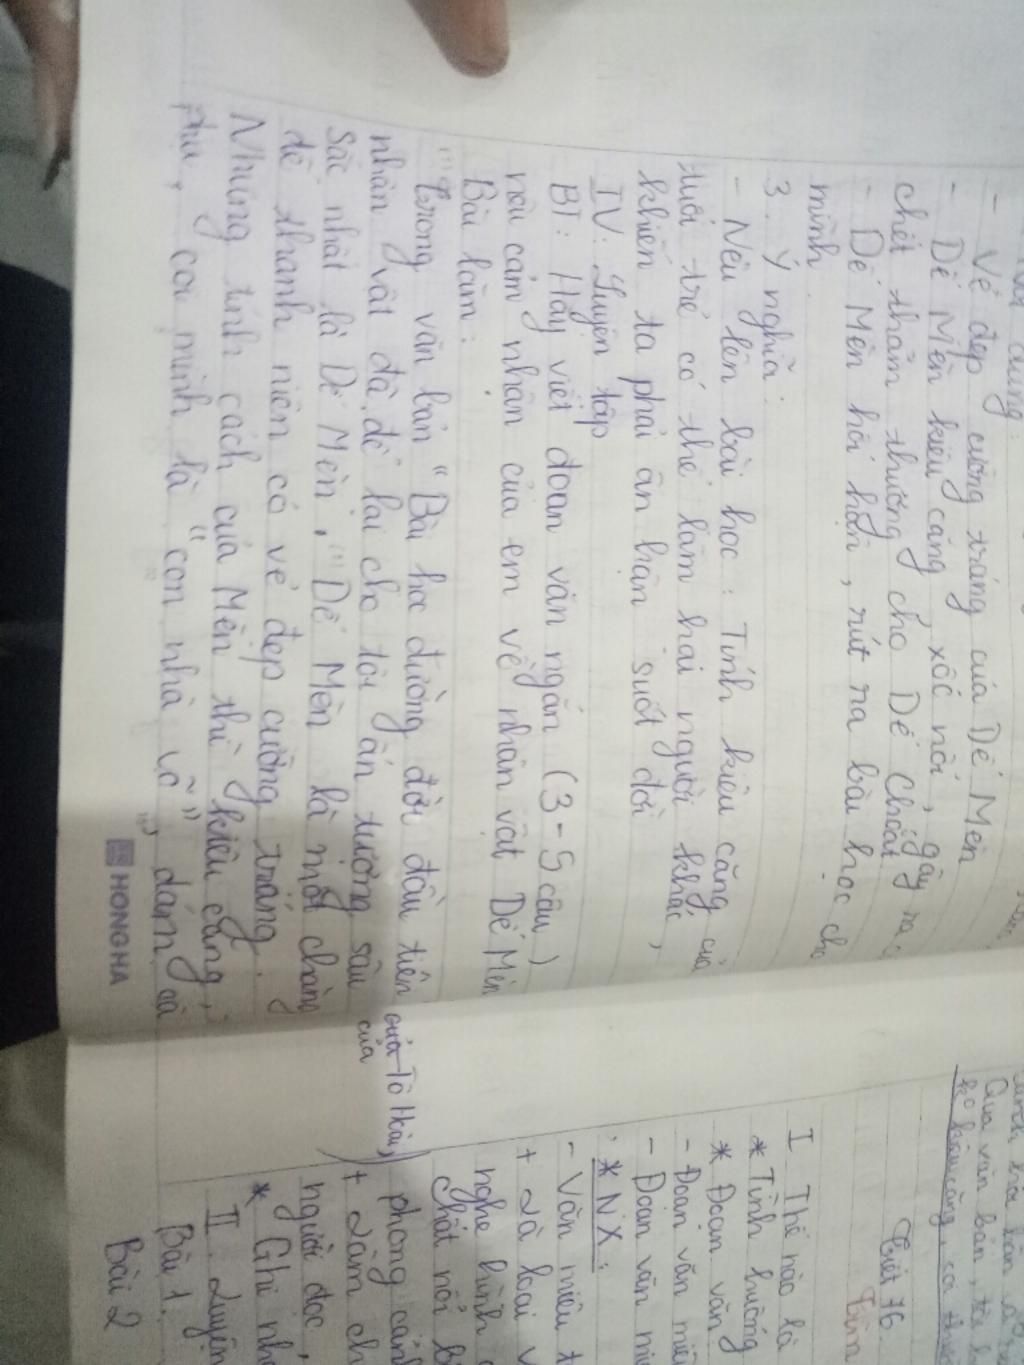 dung:
- Vẻ đẹp cường tráng của Dế Mèn
- Dế Mèn kiêu căng, xốc nổi, gây ra
chết thảm thương cho Dế Choắt
- Dế Mèn hối hận, rút ra bài học cho
mình.
3. Ý nghĩa:
- Nêu lên bài học: Tính kiêu căng của
tuổi trẻ có thể làm hại người khác,
khiến ta phải ân hận suốt đời
IV: Luyện tập
BT: Hãy viết đoạn văn ngắn (3-5 câu)
nêu cảm nhận của em về nhân vật Dế Mèn
Bài làm:
Trong văn bản "Bài học đường đời đầu tiên của Tô Hoài,
nhân vật đã để lại cho tôi ấn tượng sâu của
sắc nhất là Dế Mèn. Dế Mèn là một chàng
dế thanh niên có vẻ đẹp cường tráng.
Nhưng tính cách của Mèn thì kiêu căng,
phu, coi mình là "con nhà võ" dám cà
HONG HA
Qua văn bản,
Tiết 76
I Thế nào là
* Tình huống
* Đoạn văn
- Đoạn văn miê
- Đoạn văn mi
* NX:
- Văn miêu t
+ Là loại v
nghe hình
chất nổi b
phong cảnh
+ Làm ch
người đọc,
* Ghi nhớ
II. Luyện
Bài 1.
Bài 2